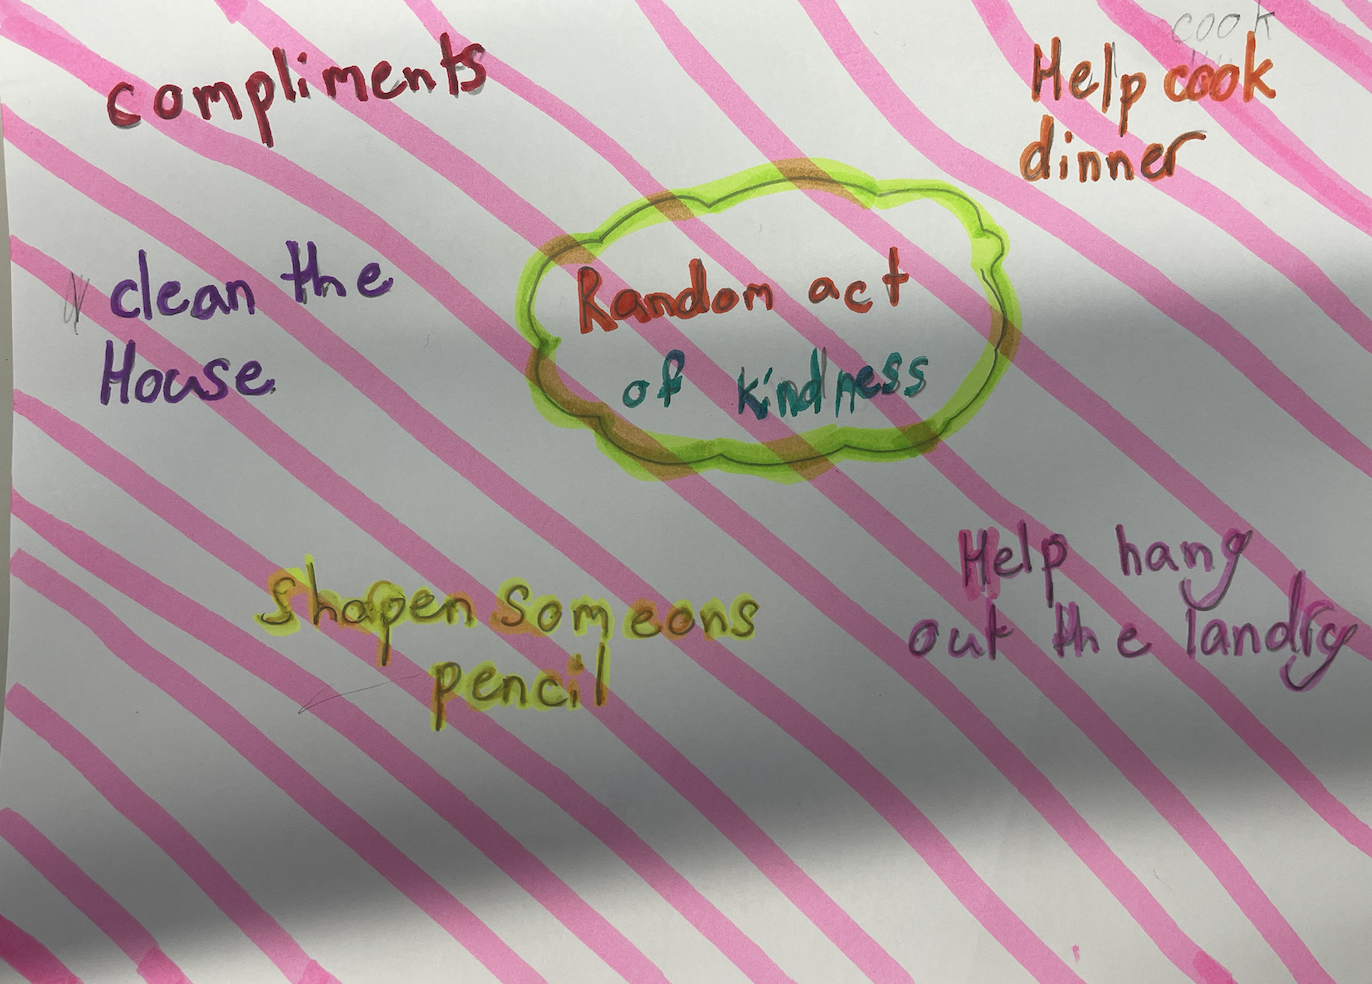 compliments
cook
Help cook
dinner
clean the
House
Random act
of kindness
shapen someons
pencil
Help hang
out the landry